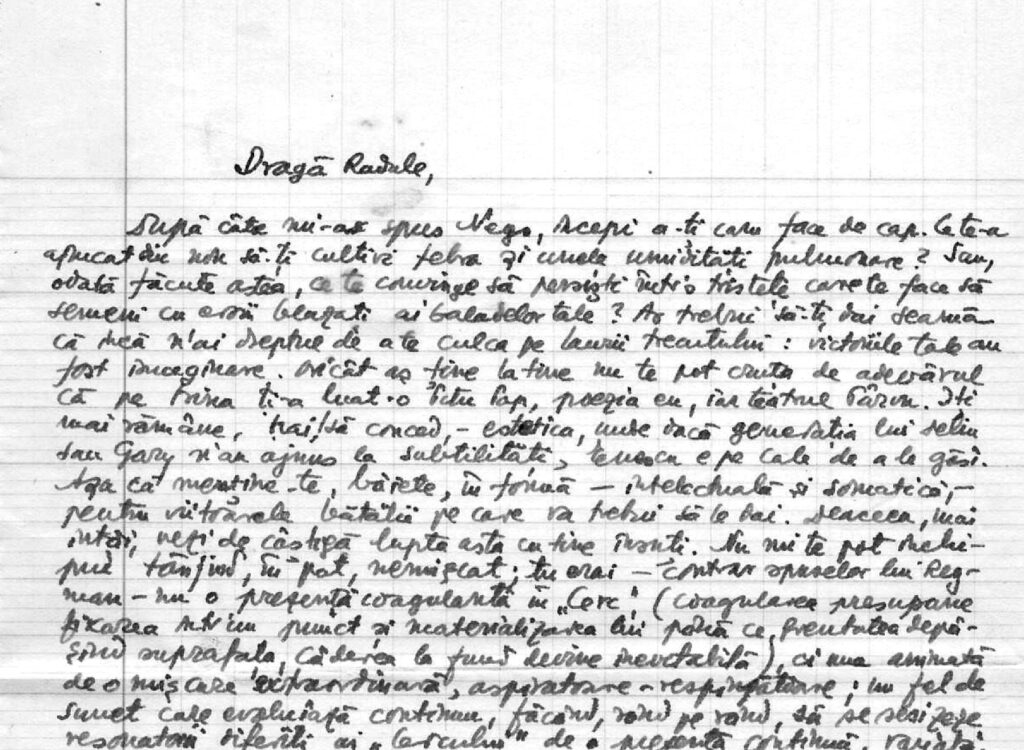 Dragă Radule,
După câte mi-au spus Nego, începi a-ți cam face de cap. Ce te-a
apucat din nou să-ți cultivi febra și unele umidități pulmonare? Sau,
odată făcute astea, ce te convinge să persiști într'o tristețe care te face să
semeni cu eroii blazați ai baladelor tale? Ar trebui să-ți dai seamă
că încă n'ai dreptul de a te culca pe laurii trecutului: victoriile tale au
fost imaginare. Oricât aș ține la tine nu te pot cruța de adevărul
că pe Irina ți-a luat-o Pap, poezia eu, iar teatrul Pârvu. Îți
mai rămâne, hai/să conced, - estetica, unde încă generația lui
sau Gary n'au ajuns la subtilități, e pe cale de a le găsi.
Așa că menține-te, băiete, în formă — intelectuală și somatică, -
pentru viitoarele bătălii pe care va trebui să le dai. Deaceea, mai
întâi, vezi de câștigă lupta asta cu tine însuți. Nu mi te pot închi-
pui tânjind, în pat, nemișcat; tu erai — contrar spuselor lui Reg-
man - nu o prezență coagulantă în „Cerc", (coagularea presupune
fixarea într'un punct și materializarea lui până ce, greutatea depă-
șind suprafața, căderea la fund devine inevitabilă), ci una animată
de o mișcare extraordinară, aspiratoare - respingătoare; un fel de
sunet care evoluiază continuu, făcând, rând pe rând, să se sesizeze
resonatorii diferiți ai „Cercului" de o prezență continuă,